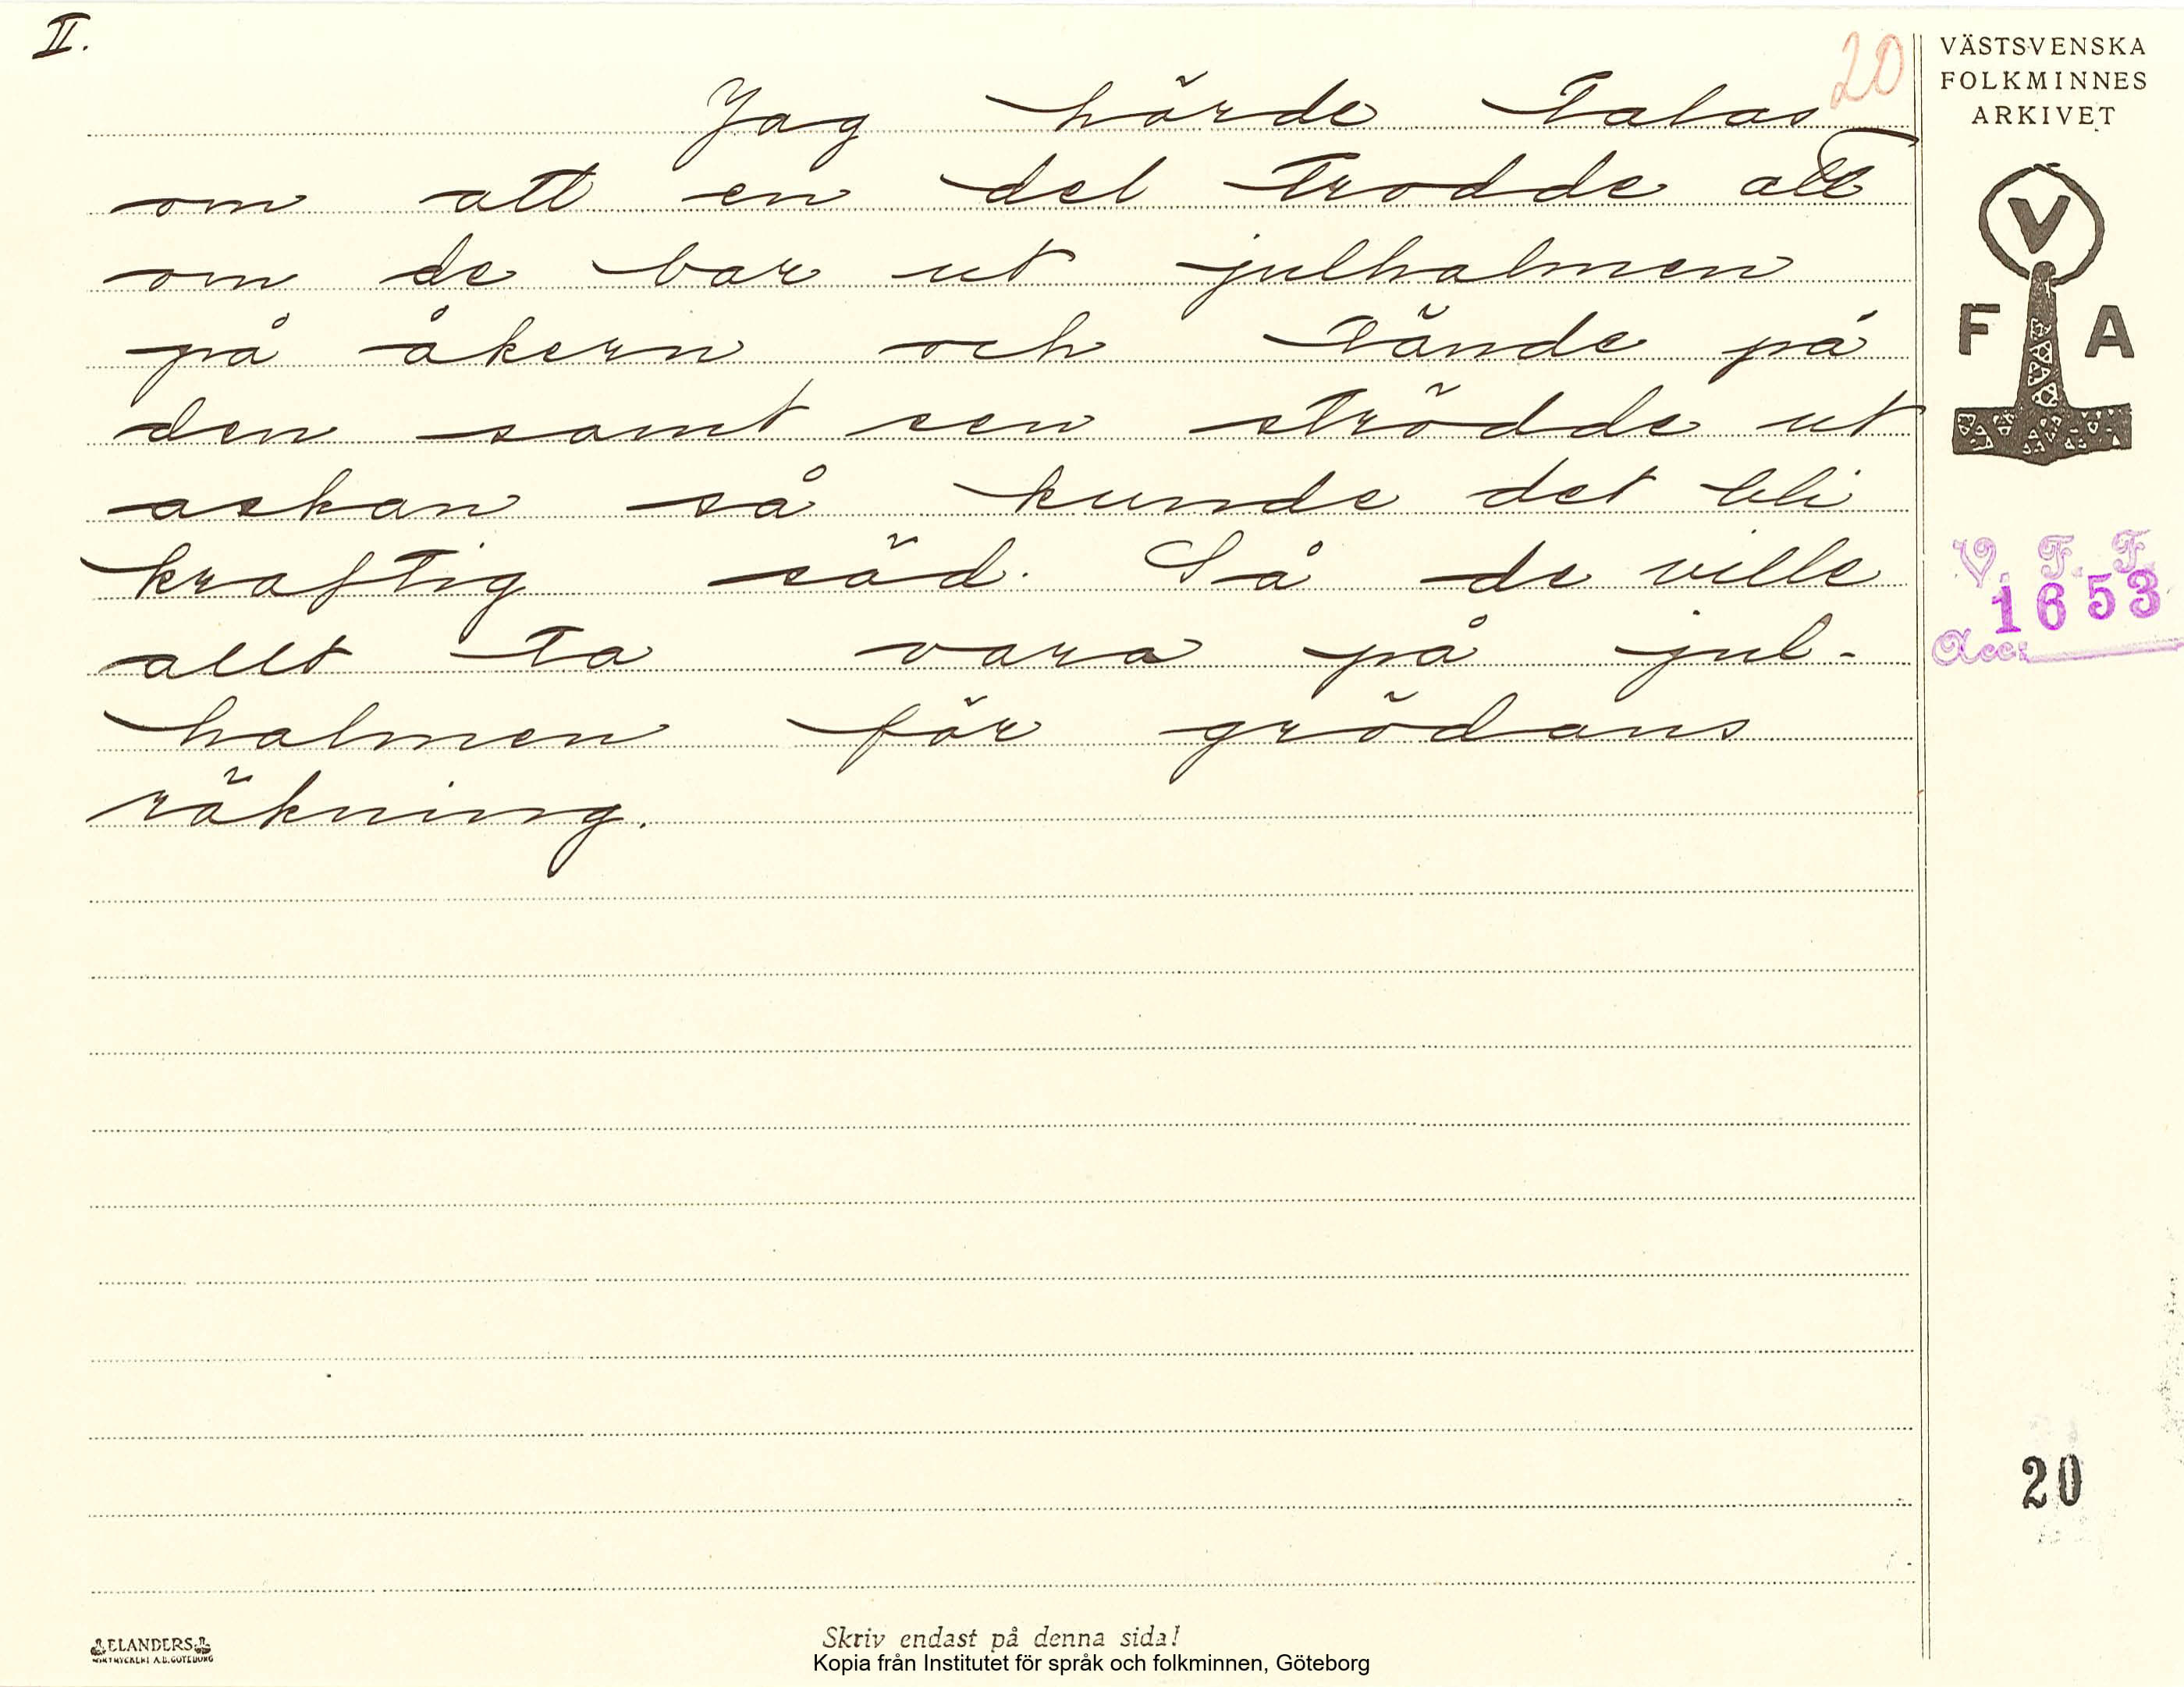 II.
20
Jag hörde talas
om att en del trodde att
om de bar ut julhalmen
på åkern och tände på
den samt sen strödde ut
askan så kunde det bli
kraftig säd. Så de ville
allt ta vara på jul-
halmen för grödans
räkning.
VÄSTSVENSKA
FOLKMINNES
ARKIVET
V
F A
V. F. F.
1653
Acc:
20
ELANDERS
Skriv endast på denna sida!
Kopia från Institutet för språk och folkminnen, Göteborg